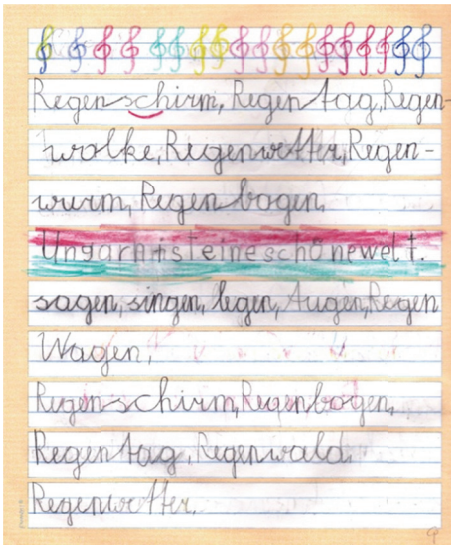 Regenschirm, Regentag, Regen-
wolke, Regenwetter, Regen-
wurm, Regenbogen,
Ungarn ist eine schöne welt.
sagen, singen, legen, Augen, Regen
Wagen,
Regenschirm, Regenbogen,
Regentag, Regenwald
Regenwetter.